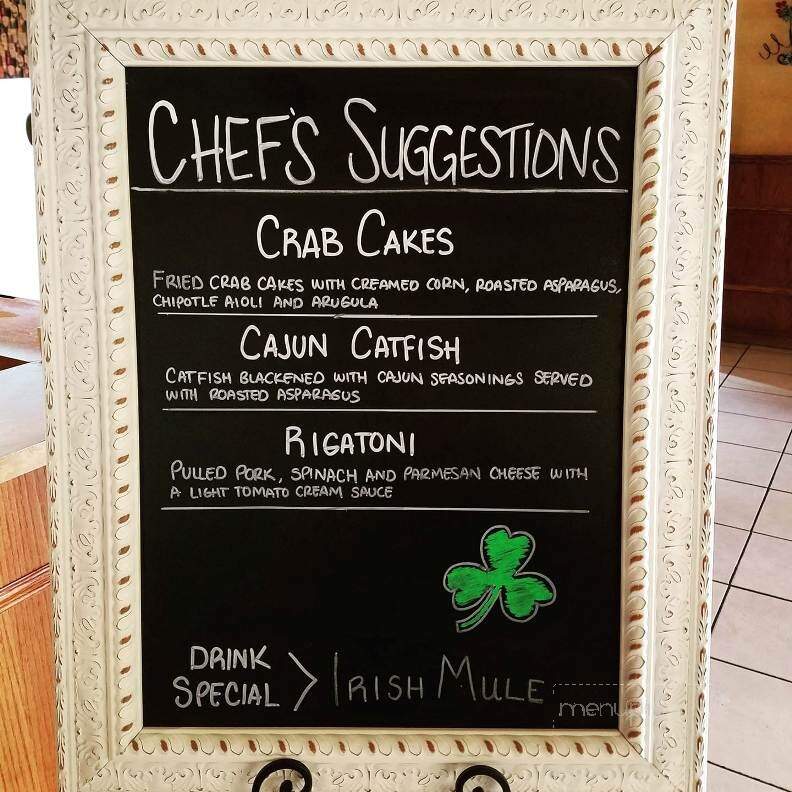 CHEF'S SUGGESTIONS
CRAB CAKES
FRIED CRAB CAKES WITH CREAMED CORN, ROASTED ASPARAGUS,
CHIPOTLE AIOLI AND ARUGULA
CAJUN CATFISH
CATFISH BLACKENED WITH CAJUN SEASONINGS SERVED
WITH ROASTED ASPARAGUS
RIGATONI
PULLED PORK, SPINACH AND PARMESAN CHEESE WITH
A LIGHT TOMATO CREAM SAUCE
DRINK
SPECIAL > IRISH MULE